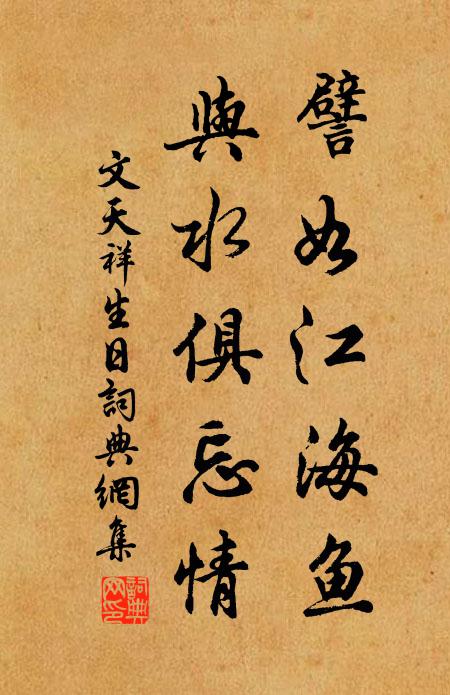 譬如江海鱼
與水俱忘情
文天祥生日詞典網集
詞典網印